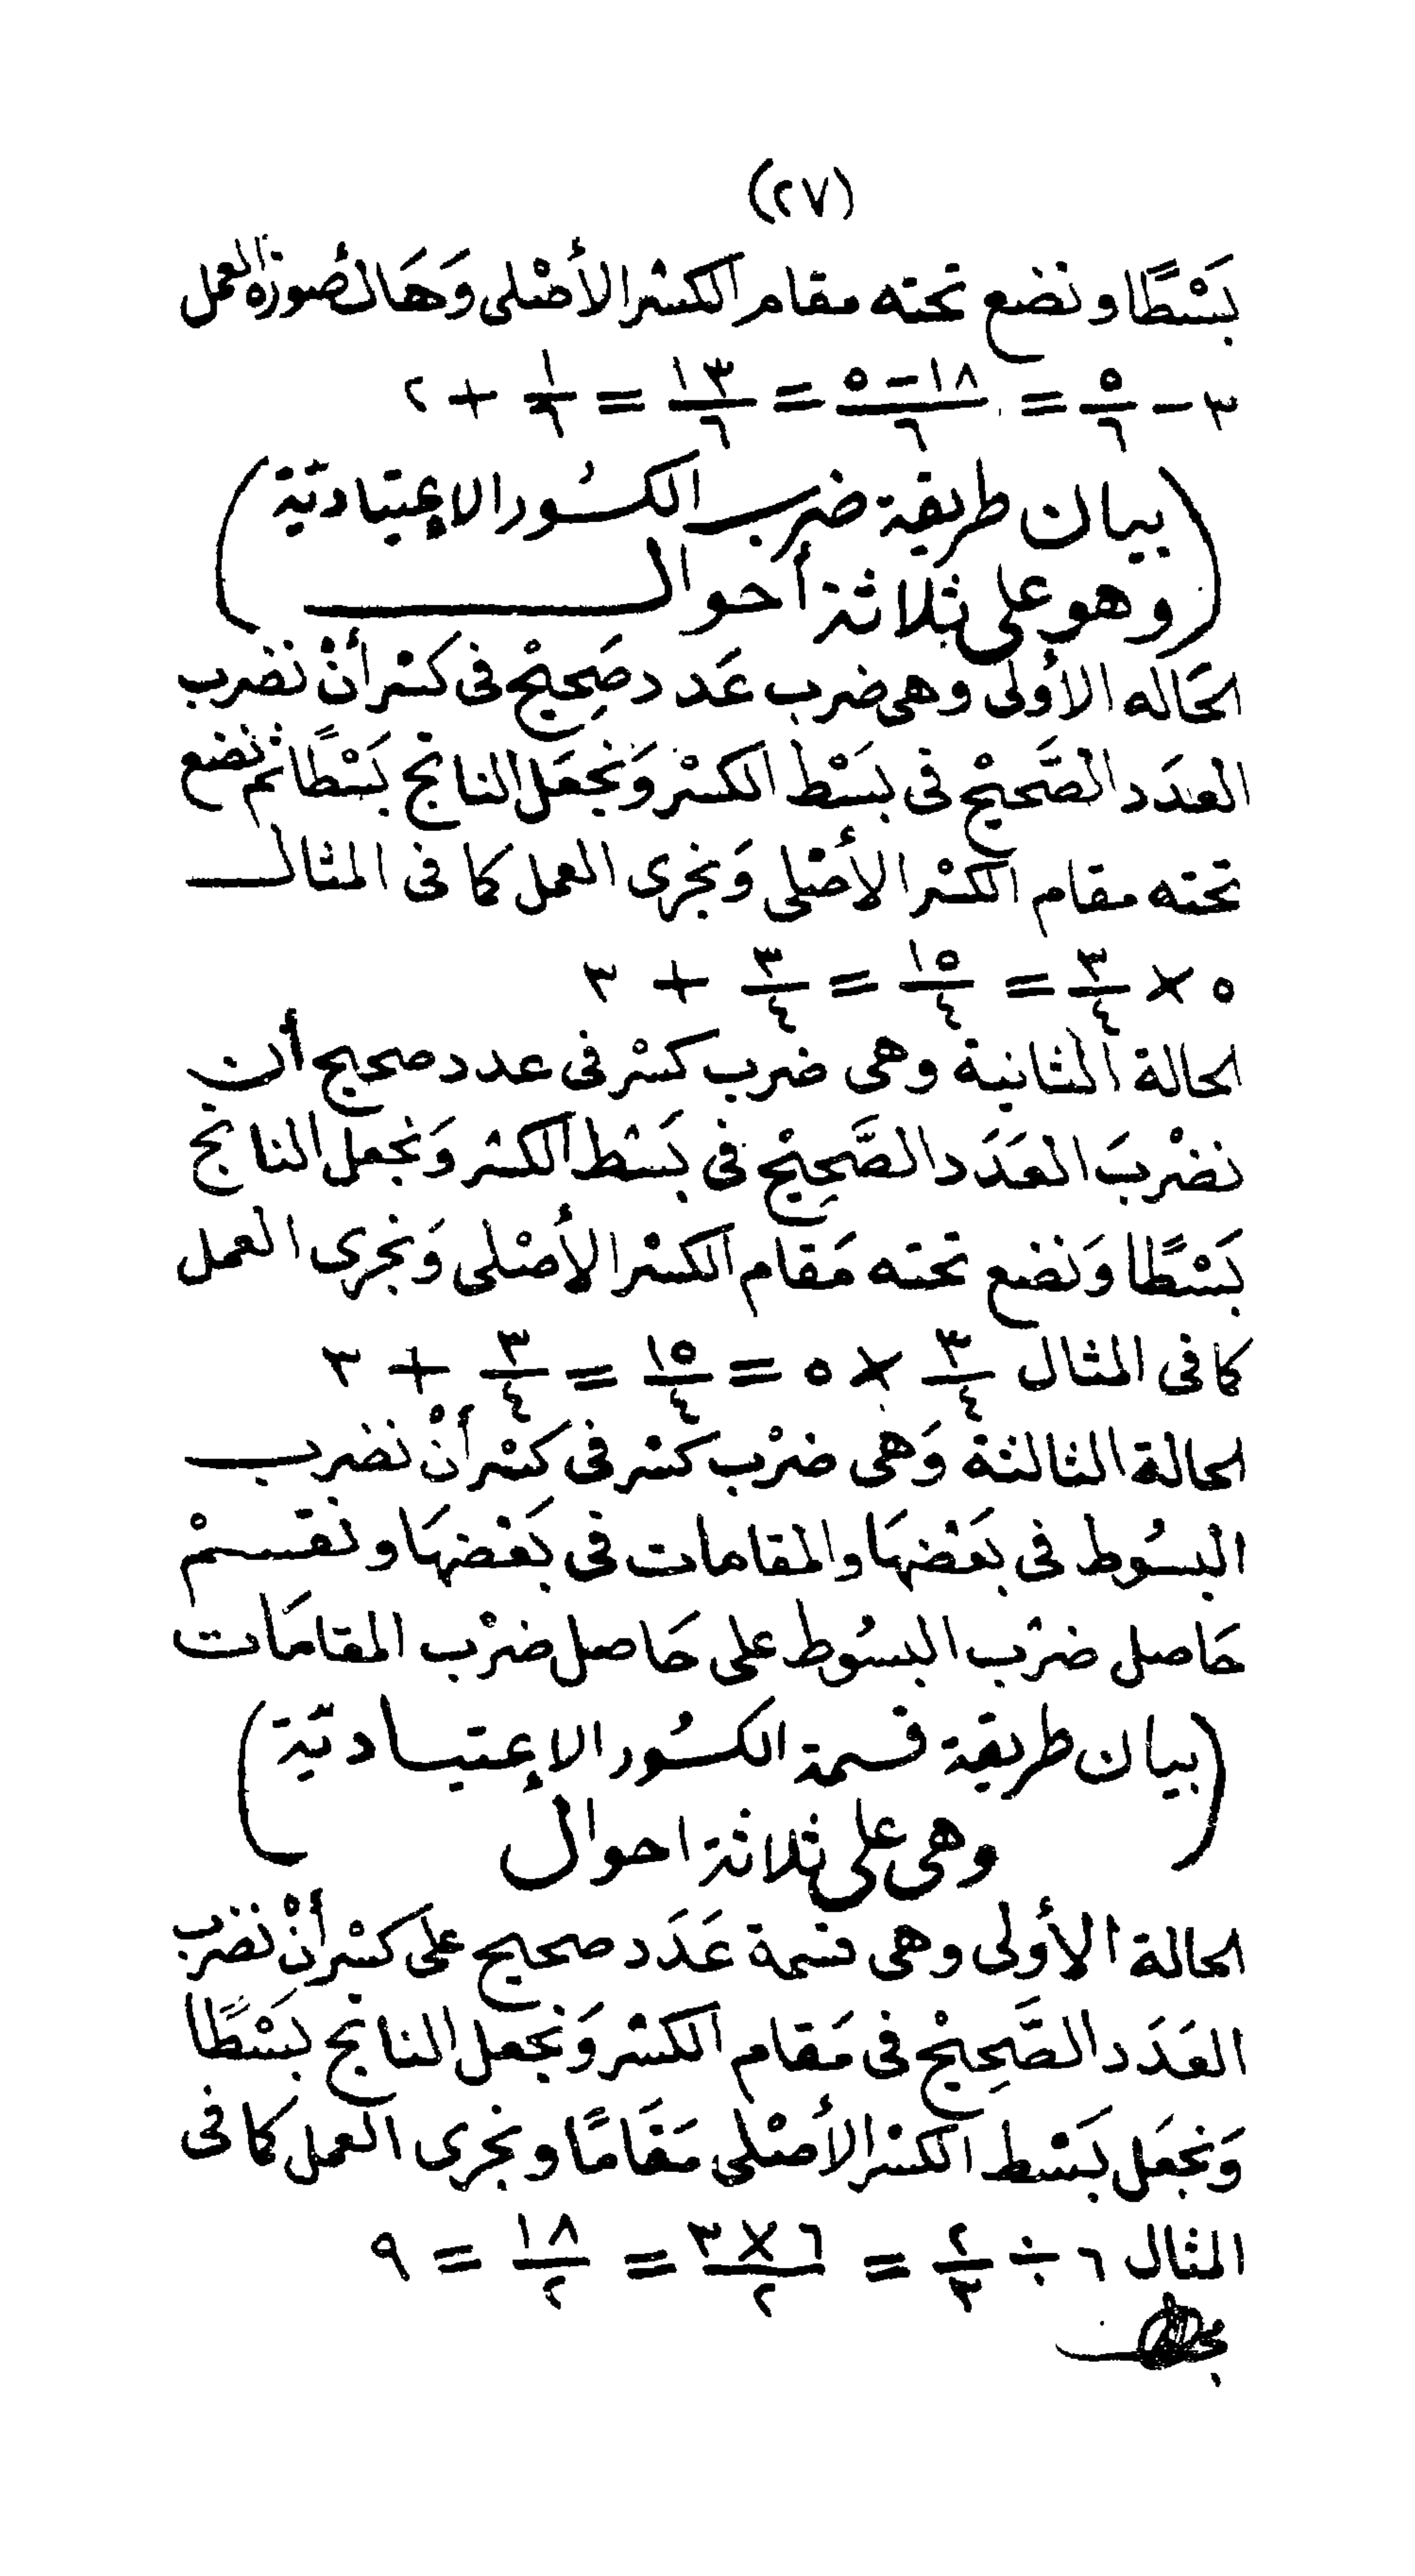 (٢٧)
بَسْطًا ونضع تحته مقام الكسْر الأصْلى وَهَاك صُورَة العمل
٣ − ٥/٦ = (١٨ − ٥)/٦ = ١٣/٦ = ١/٦ + ٢
(بيان طريقة ضرب الكسُور الإعتياديّة
وهو على ثلاثة أحوال)
الحَاله الأولى وهى ضرب عَدد صَحِيْح فى كسْر أنْ نضرب
العدَد الصَّحيْح فى بسْط الكسْر وَنجعَل الناتج بَسْطًا ثم نضع
تحته مقام الكسْر الأصْلى وَنجرى العمل كما فى المثال
٥ × ٣/٤ = ١٥/٤ = ٣/٤ + ٣
الحالة الثانية وهى ضرب كسْر فى عدد صحيح أن
نضْربَ العَدَد الصَّحِيْح فى بَسْط الكسْر وَنجعل الناتج
بَسْطًا وَنضع تحته مَقام الكسْر الأصْلى وَنجرى العمل
كما فى المثال ٣/٤ × ٥ = ١٥/٤ = ٣/٤ + ٣
الحالة الثالثة وَهى ضرْب كسْر فى كسْر أنْ نضرب
البسُوط فى بَعْضهَا والمقامات فى بَعْضهَا ونقسمْ
حَاصل ضرْب البسُوط على حَاصل ضرْب المقامَات
(بيان طريقة قسمة الكسُور الإعتياديّة
وهى على ثلاثة احوال)
الحالة الأولى وهى قسمة عَدَد صحيح على كسْر أنْ نضرب
العَدَد الصَّحِيْح فى مَقام الكسْر وَنجعل الناتج بسْطًا
وَنجعَل بَسْط الكسْر الأصْلى مَقَامًا ونجرى العمل كما فى
المثال ٦ ÷ ٢/٣ = (٦ × ٣)/٢ = ١٨/٢ = ٩